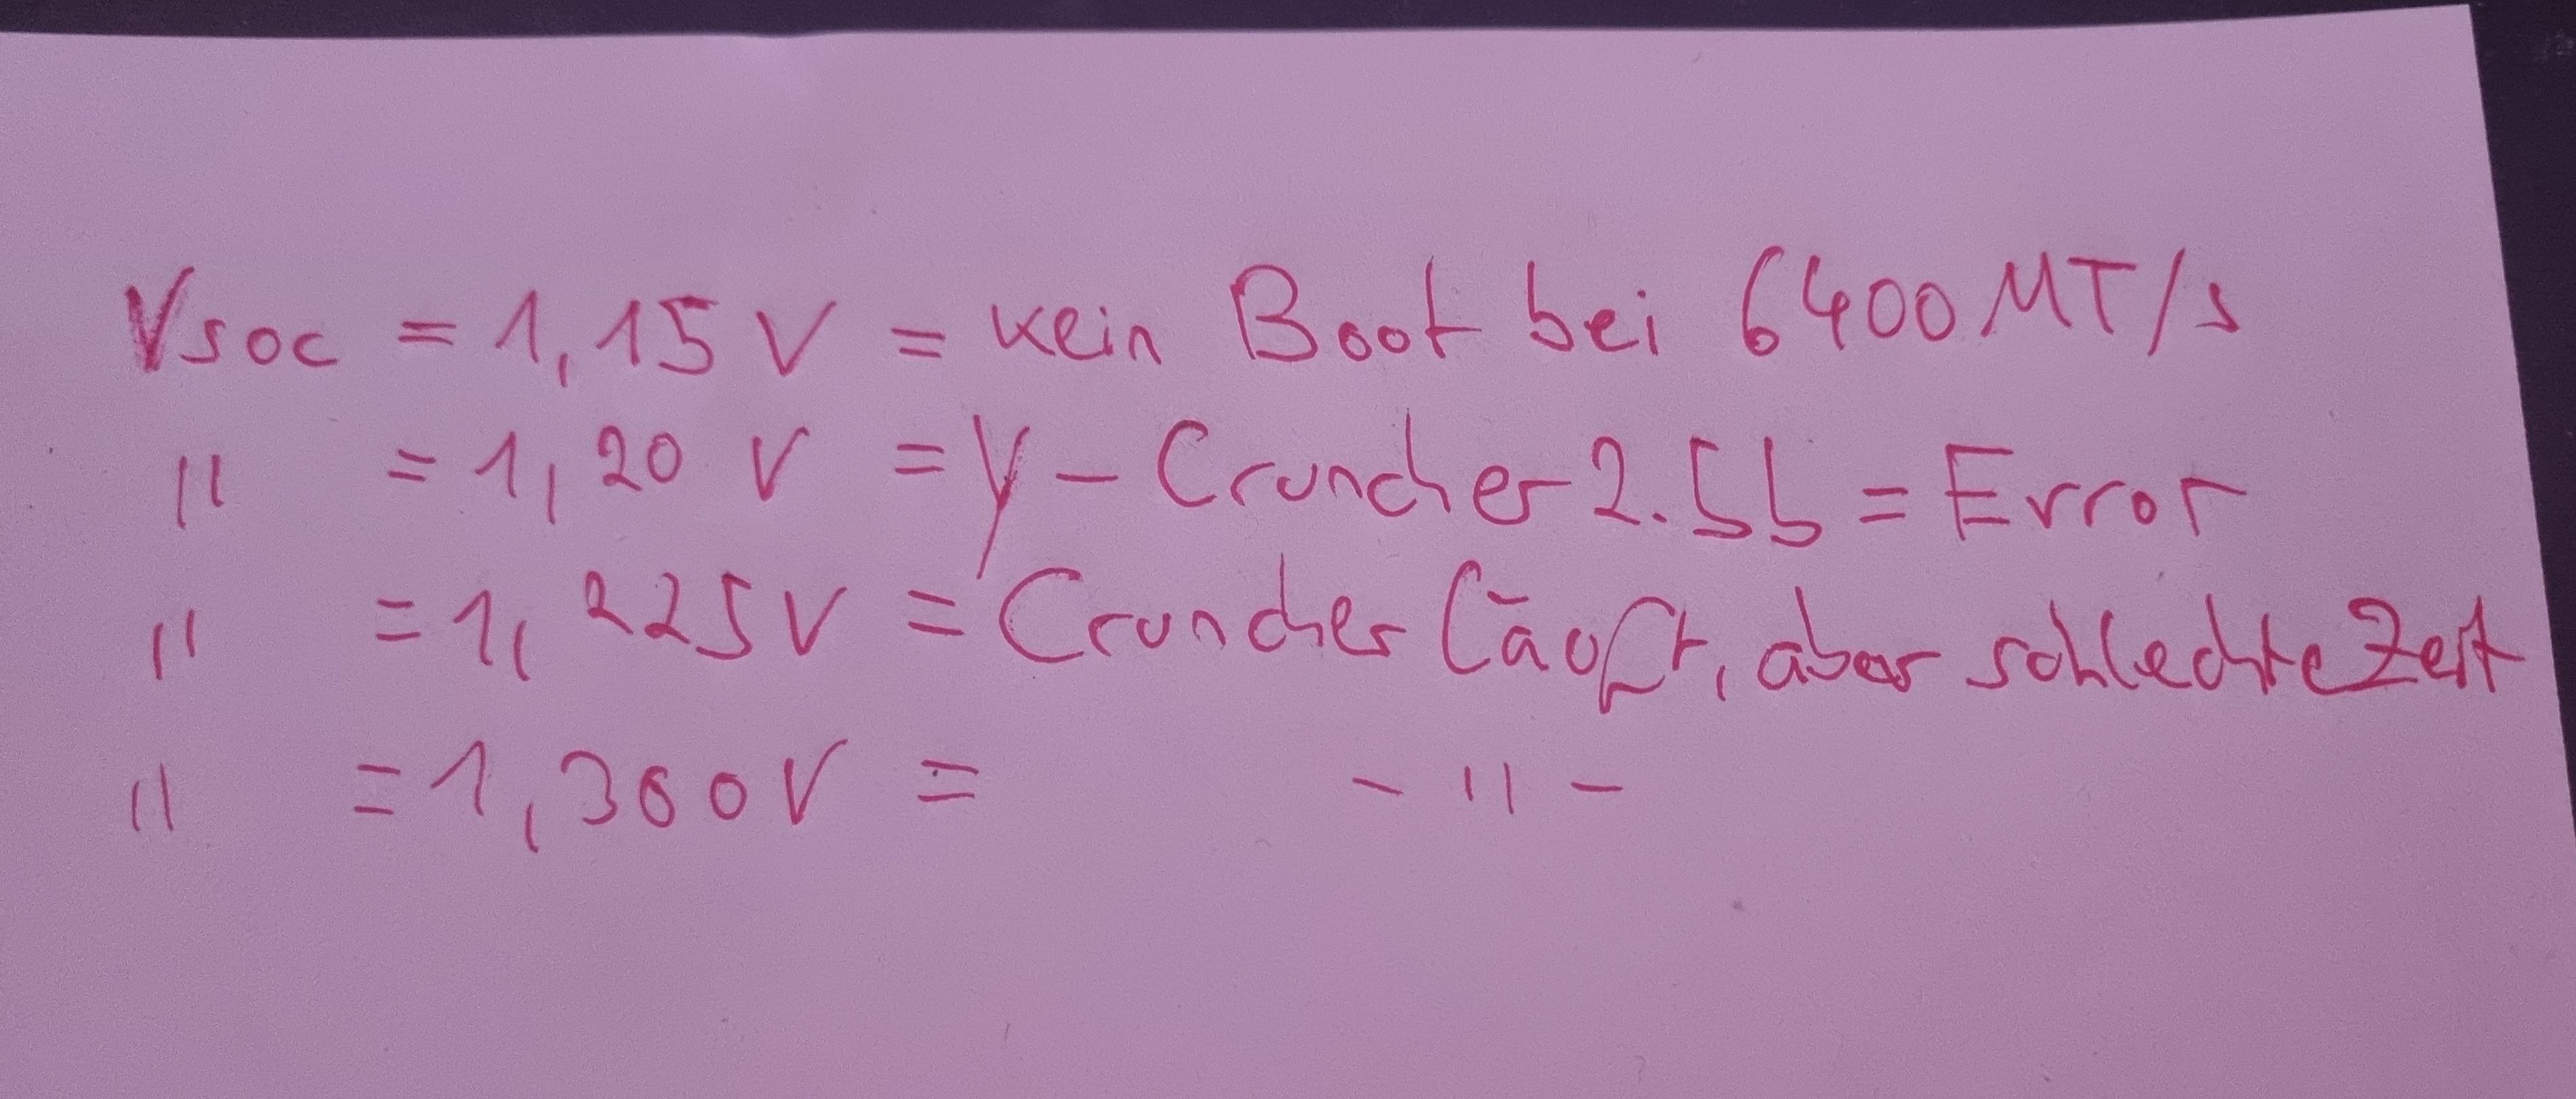 Vsoc = 1,15 V = kein Boot bei 6400 MT/s
" = 1,20 V = y-Cruncher 2.5b = Error
" = 1,225V = Cruncher läuft, aber schlechte Zeit
" = 1,300V = - " -